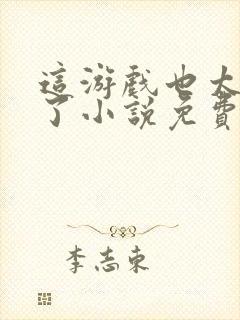 這游戲也太
了小說免費
李志東